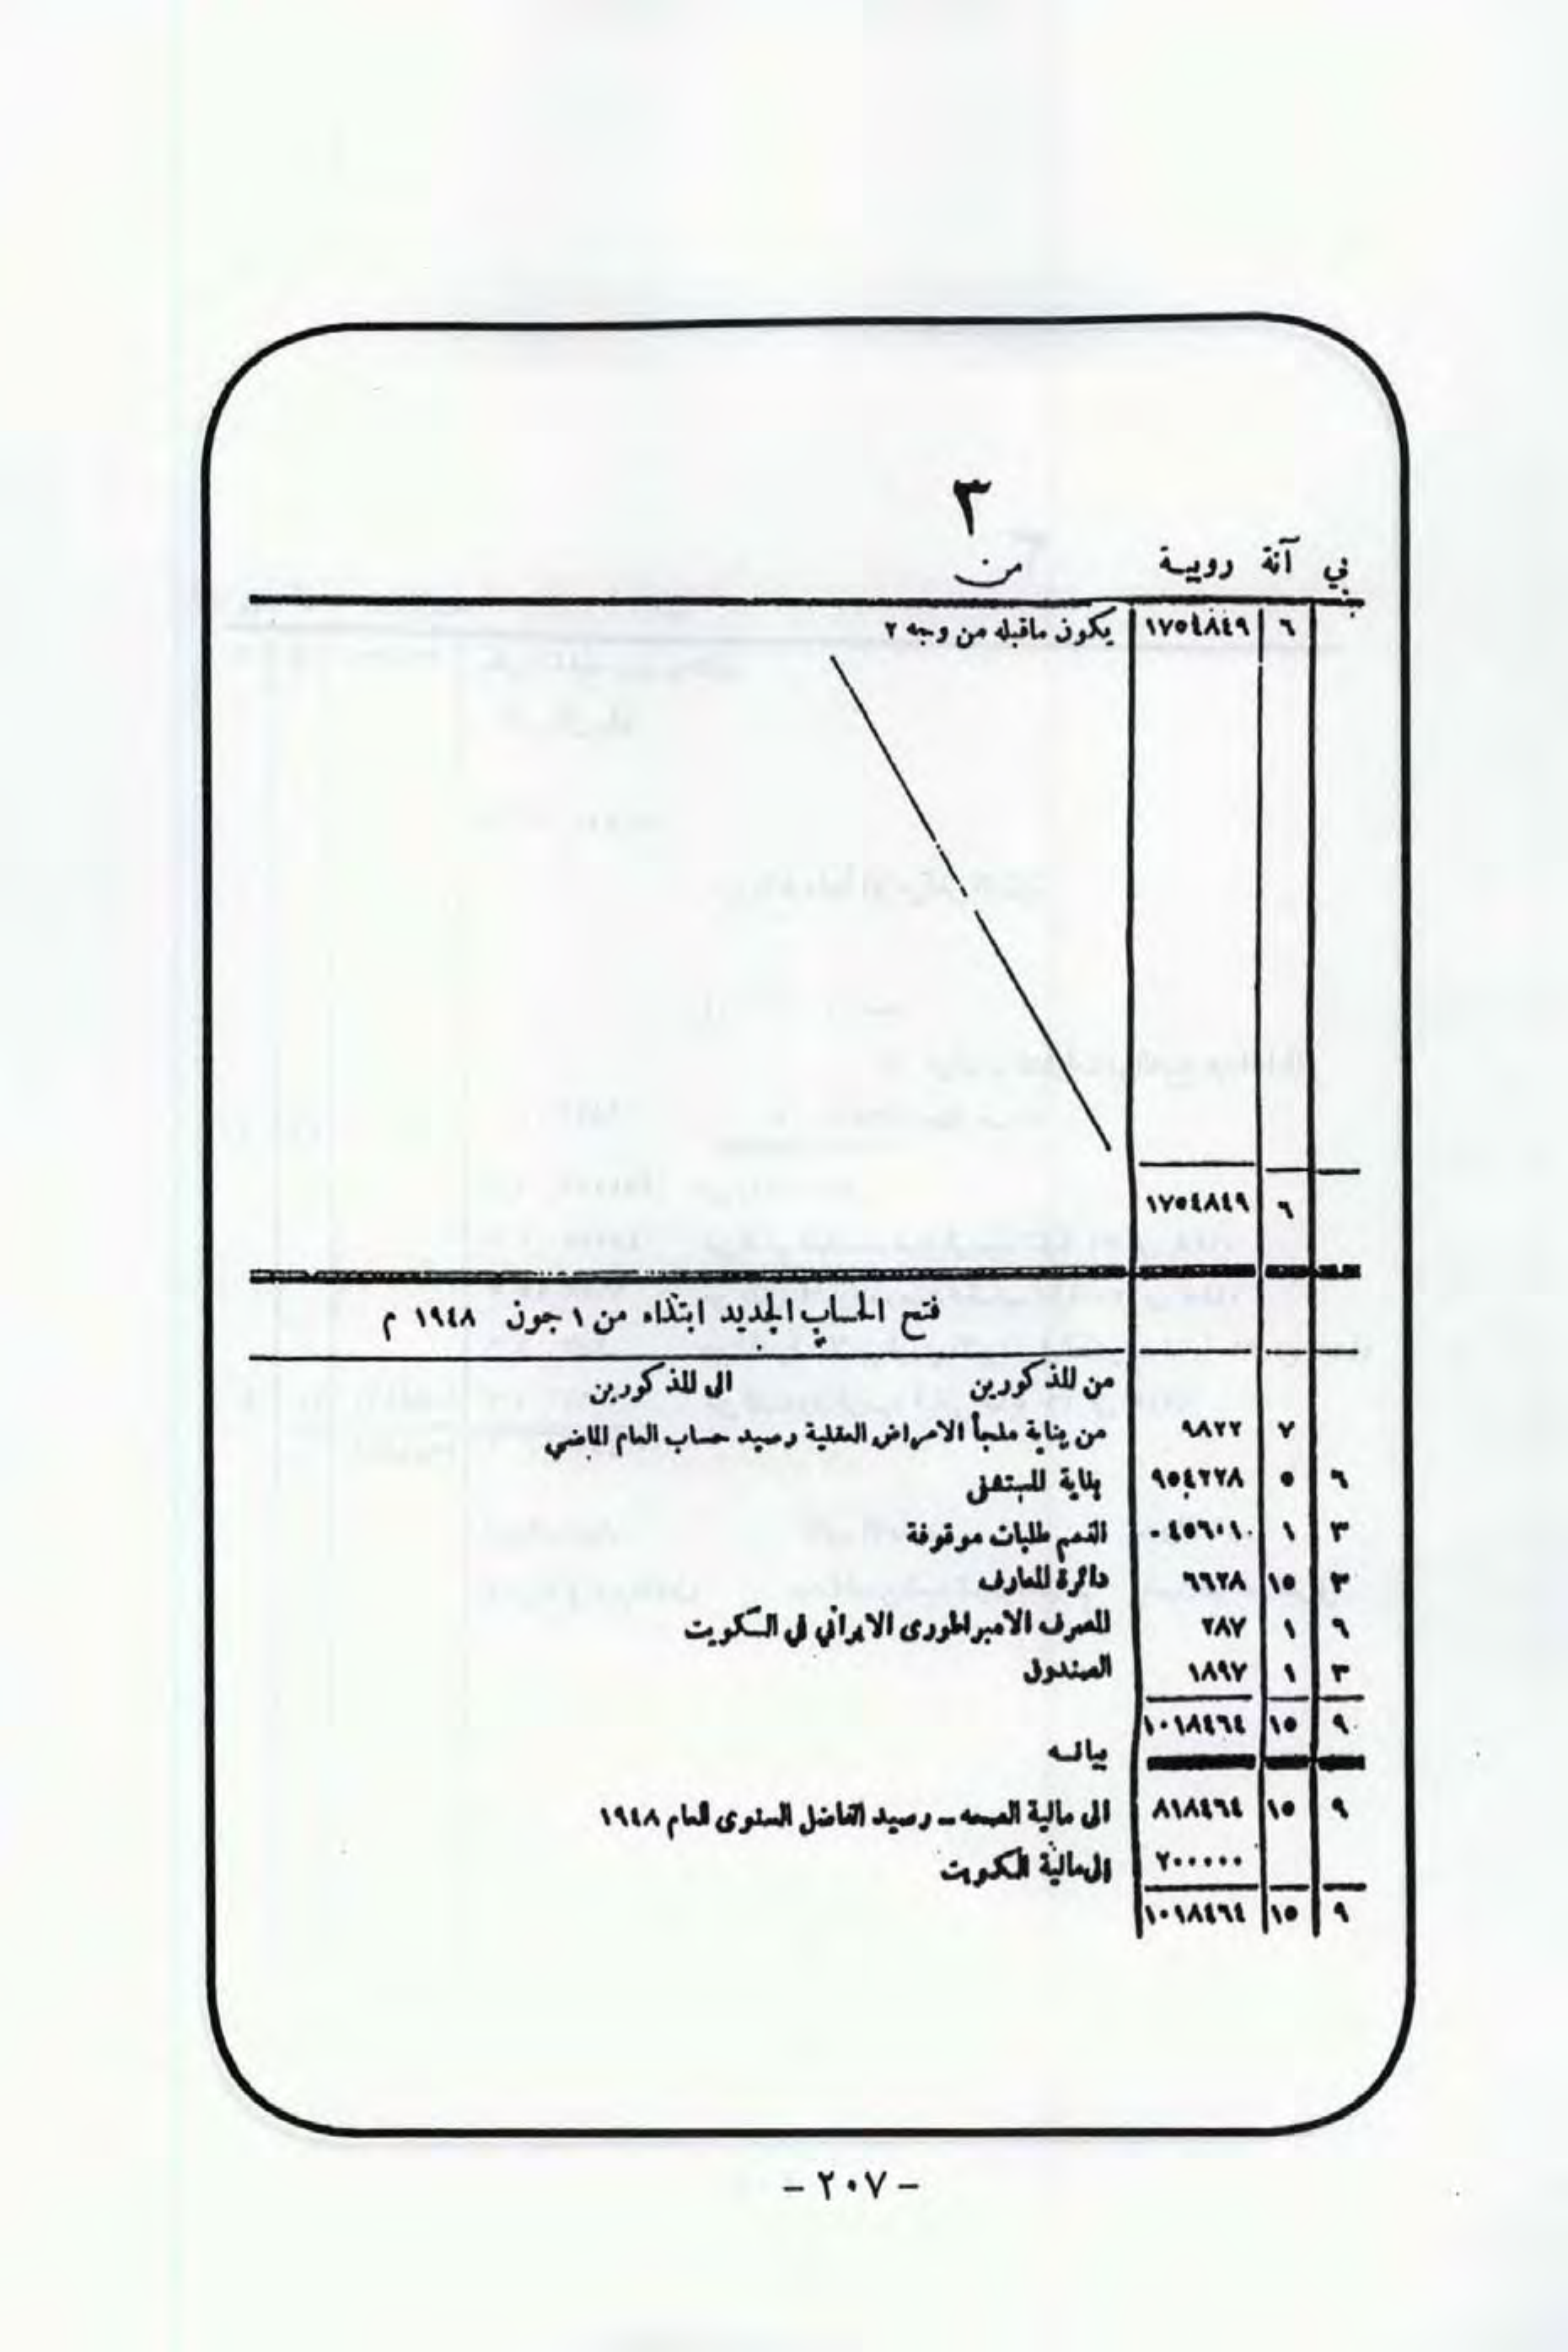 ٣
بي آنة روبية من
٦ ١٧٥٤٨٤٩ يكون ماقبله من وجه ٢
٦ ١٧٥٤٨٤٩
فتح الحساب الجديد ابتداء من ١ جون ١٩٤٨ م
من المذكورين الى المذكورين
٧ ٩٨٢٢ من بناية ملجأ الامراض العقلية رصيد حساب العام الماضي
٦ ٥ ٩٥٤٢٢٨ بناية المستشفى
٣ ١ طلبات موقوفة
٣ ١٥ ٦٦٢٨ دائرة المعارف
٦ ١ ٢٨٧ المصرف الامبراطورى الايراني في الكويت
٣ ١ ١٨٩٧ الصندوق
٩ ١٥ ١٠١٨٤٦٤
بيانه
٩ ١٥ ٨١٨٤٦٤ الى مالية الصحه – رصيد الفاضل السنوى للعام ١٩٤٨
٢٠٠٠٠٠ الى مالية الكويت
٩ ١٥ ١٠١٨٤٦٤
– ٢٠٧ –